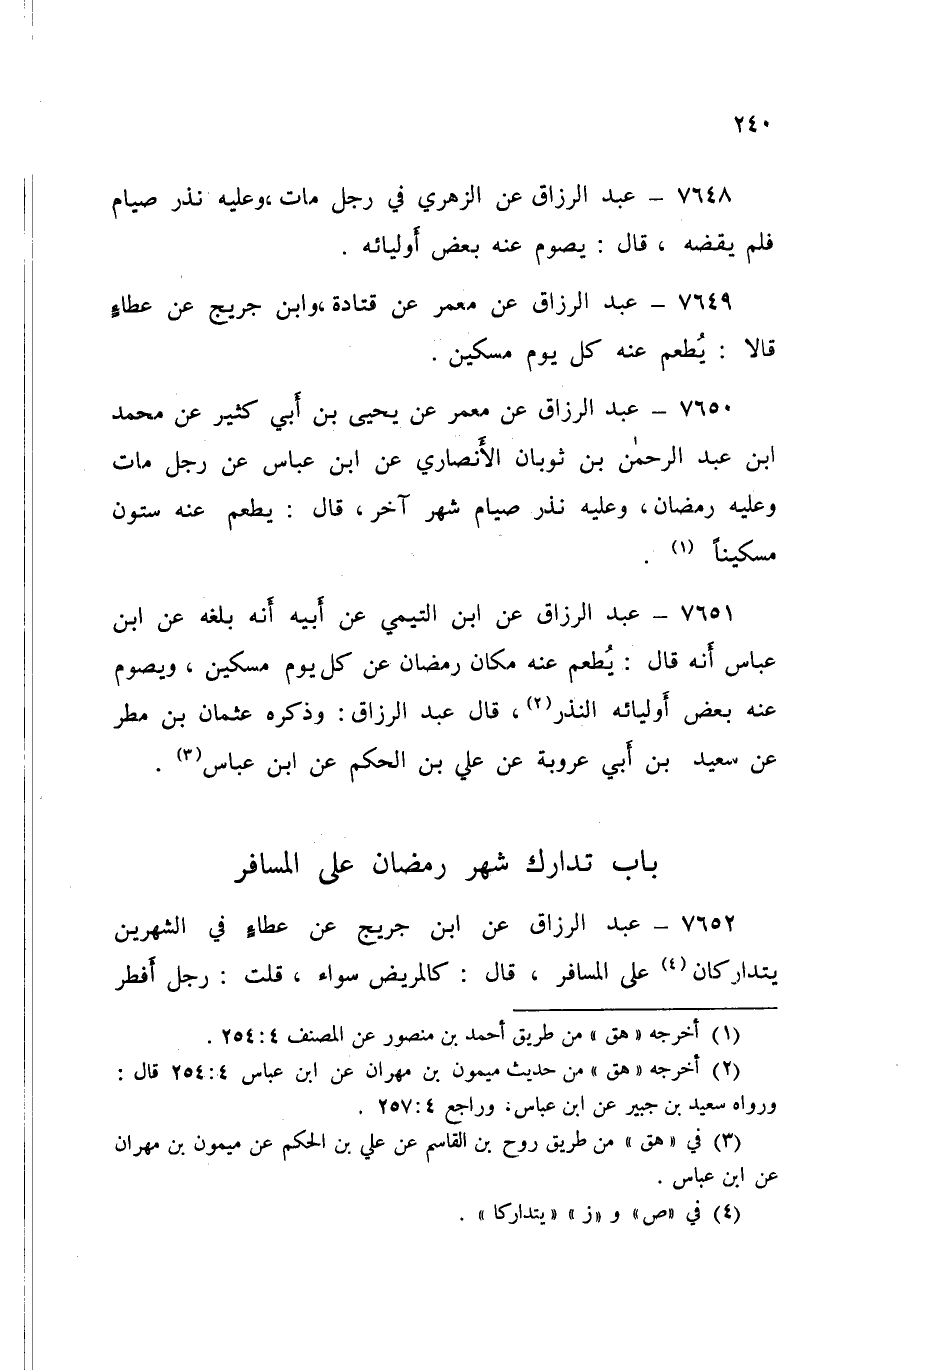 ٢٤٠
٧٦٤٨ – عبد الرزاق عن الزهري في رجل مات ،وعليه نذر صيام
فلم يقضه ، قال : يصوم عنه بعض أوليائه .
٧٦٤٩ – عبد الرزاق عن معمر عن قتادة ،وابن جريج عن عطاءٍ
قالا : يُطعم عنه كل يوم مسكين .
٧٦٥٠ – عبد الرزاق عن معمر عن يحيى بن أبي كثير عن محمد
ابن عبد الرحمٰن بن ثوبان الأنصاري عن ابن عباس عن رجل مات
وعليه رمضان ، وعليه نذر صيام شهر آخر ، قال : يطعم عنه ستون
مسكيناً (١) .
٧٦٥١ – عبد الرزاق عن ابن التيمي عن أبيه أنه بلغه عن ابن
عباس أنه قال : يُطعم عنه مكان رمضان عن كل يوم مسكين ، ويصوم
عنه بعض أوليائه النذر(٢) ، قال عبد الرزاق : وذكره عثمان بن مطر
عن سعيد بن أبي عروبة عن علي بن الحكم عن ابن عباس(٣) .
باب تدارك شهر رمضان على المسافر
٧٦٥٢ – عبد الرزاق عن ابن جريج عن عطاءٍ في الشهرين
يتداركان(٤) على المسافر ، قال : كالمريض سواء ، قلت : رجل أفطر
(١) أخرجه « هق » من طريق أحمد بن منصور عن المصنف ٤ : ٢٥٤ .
(٢) أخرجه « هق » من حديث ميمون بن مهران عن ابن عباس ٤ : ٢٥٤ قال :
ورواه سعيد بن جبير عن ابن عباس، وراجع ٤ : ٢٥٧ .
(٣) في « هق » من طريق روح بن القاسم عن علي بن الحكم عن ميمون بن مهران
عن ابن عباس .
(٤) في «ص» و «ز » « يتداركا » .